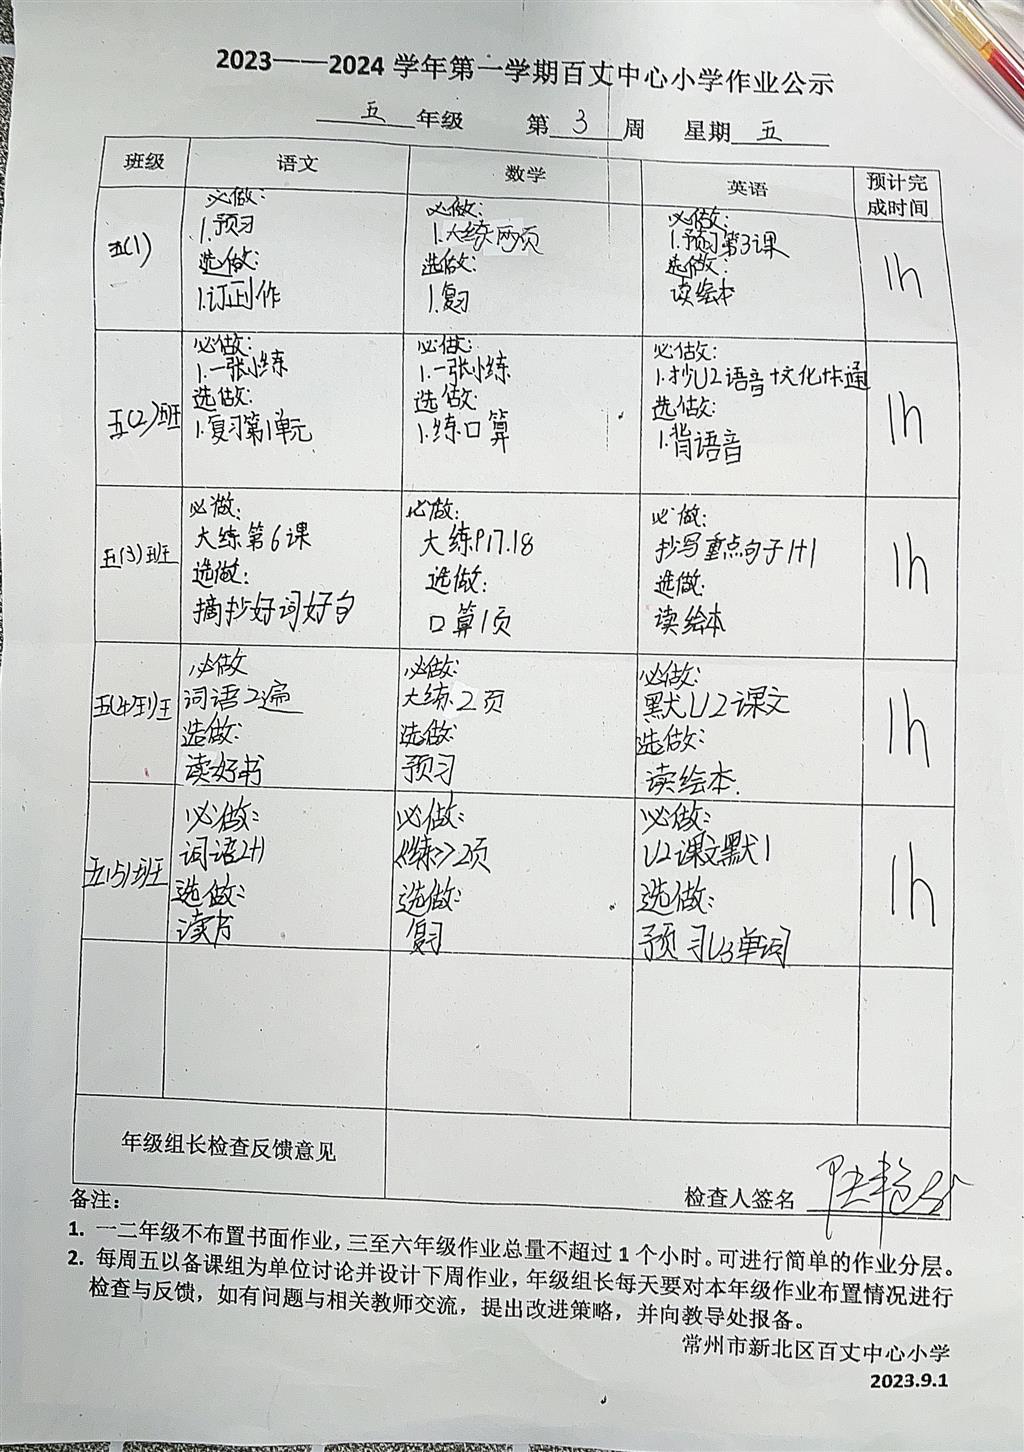 2023——2024 学年第一学期百丈中心小学作业公示
五 年级 第 3 周 星期 五
班级 语文 数学 英语 预计完成时间
五(1)
必做：
1.预习
选做：
1.订正作
必做：
1.大练两页
选做：
1.复习
必做：
1.预习第3课
选做：
读绘本
1h
五(2)班
必做：
1.一张小练
选做：
1.复习第1单元
必做：
1.一张小练
选做：
1.练口算
必做：
1.抄U2语音+文化卡通
选做：
1.背语音
1h
五(3)班
必做：
大练第6课
选做：
摘抄好词好句
必做：
大练P17.18
选做：
口算1页
必做：
抄写重点句子1+1
选做：
读绘本
1h
五(4)班
必做
词语2遍
选做：
读好书
必做：
大练2页
选做：
预习
必做：
默U2课文
选做：
读绘本.
1h
五(5)班
必做：
词语2+1
选做：
读书
必做：
《练》2页
选做：
复习
必做：
U2课文默1
选做：
预习U3单词
1h
年级组长检查反馈意见
检查人签名
备注：
1. 一二年级不布置书面作业，三至六年级作业总量不超过 1 个小时。可进行简单的作业分层。
2. 每周五以备课组为单位讨论并设计下周作业，年级组长每天要对本年级作业布置情况进行
检查与反馈，如有问题与相关教师交流，提出改进策略，并向教导处报备。
常州市新北区百丈中心小学
2023.9.1